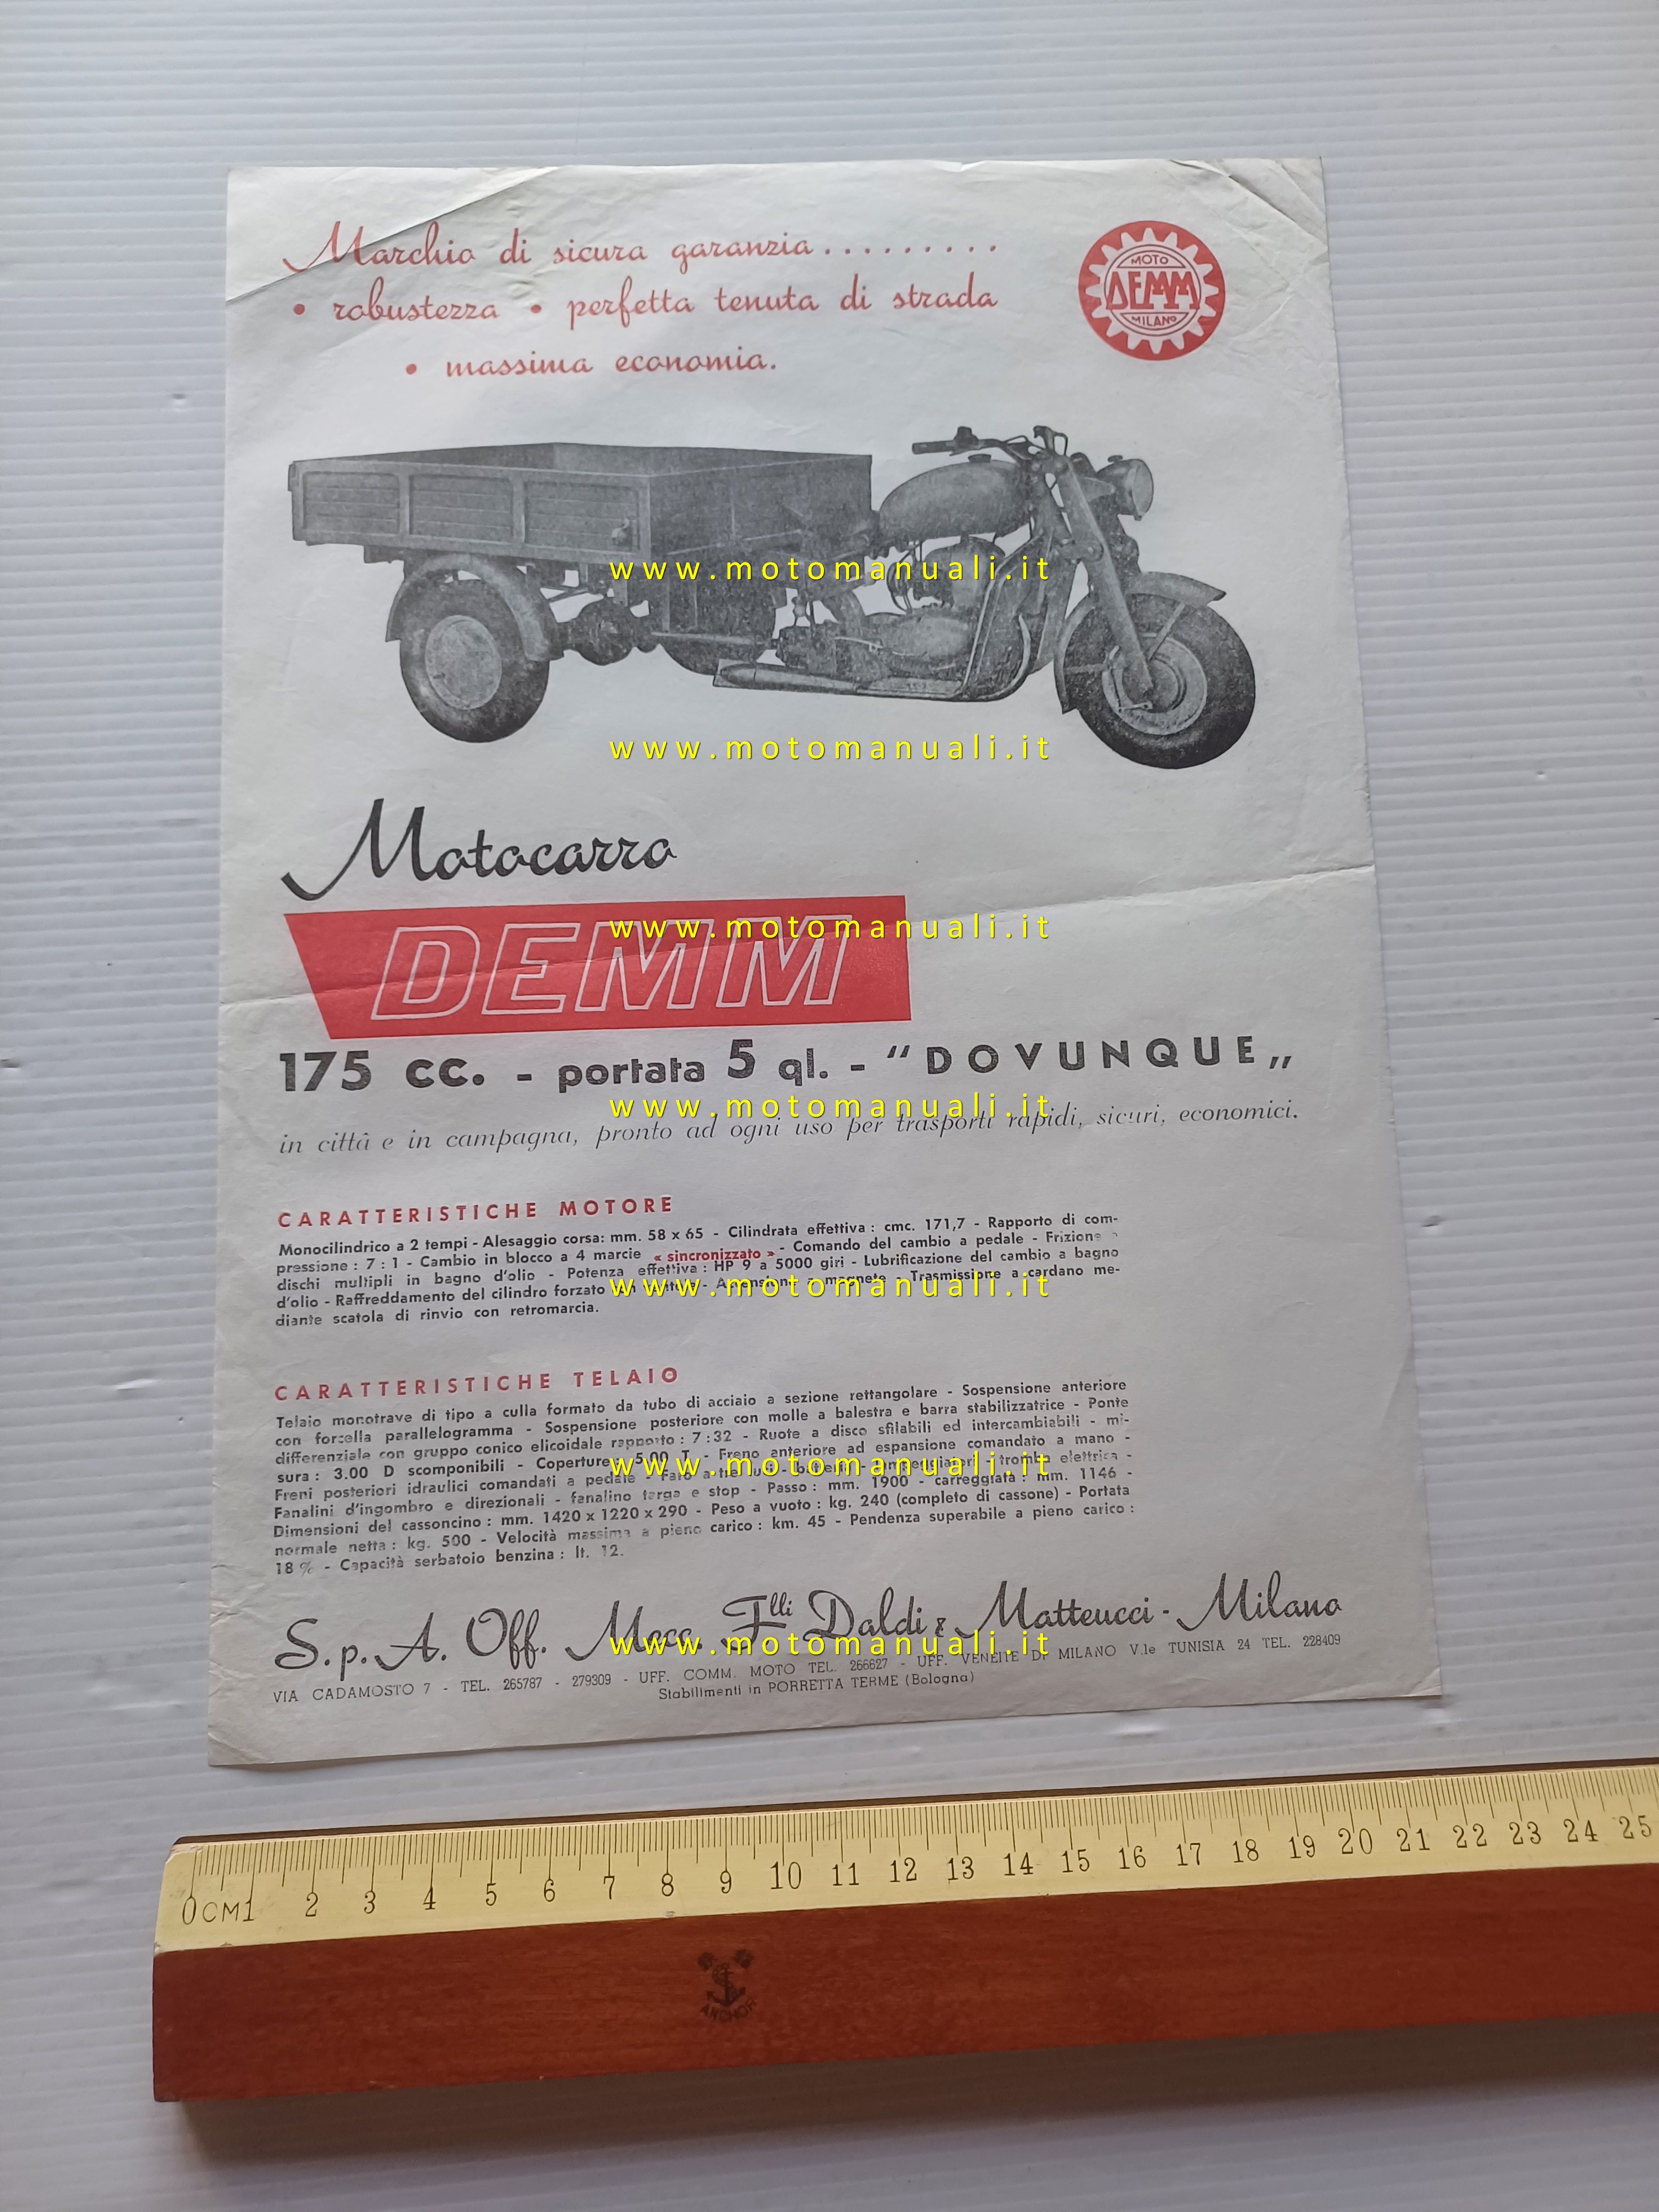 Marchio di sicura garanzia.........
• robustezza • perfetta tenuta di strada
• massima economia.
MOTO
DEMM
MILANO
www.motomanuali.it
www.motomanuali.it
Motocarro
DEMM
www.motomanuali.it
175 cc. - portata 5 ql. - “DOVUNQUE„
www.motomanuali.it
in città e in campagna, pronto ad ogni uso per trasporti rapidi, sicuri, economici.
CARATTERISTICHE MOTORE
Monocilindrico a 2 tempi - Alesaggio corsa: mm. 58 x 65 - Cilindrata effettiva : cmc. 171,7 - Rapporto di com-
pressione : 7 : 1 - Cambio in blocco a 4 marcie « sincronizzato » - Comando del cambio a pedale - Frizione a
dischi multipli in bagno d'olio - Potenza effettiva : HP 9 a 5000 giri - Lubrificazione del cambio a bagno
d'olio - Raffreddamento del cilindro forzato - Accensione a magnete - Trasmissione a cardano me-
www.motomanuali.it
diante scatola di rinvio con retromarcia.
CARATTERISTICHE TELAIO
Telaio monotrave di tipo a culla formato da tubo di acciaio a sezione rettangolare - Sospensione anteriore
con forcella parallelogramma - Sospensione posteriore con molle a balestra e barra stabilizzatrice - Ponte
differenziale con gruppo conico elicoidale rapporto : 7 : 32 - Ruote a disco sfilabili ed intercambiabili - mi-
sura : 3.00 D scomponibili - Coperture 5.00 T - Freno anteriore ad espansione comandato a mano -
www.motomanuali.it
Freni posteriori idraulici comandati a pedale - Faro a tre luci - batteria - tromba elettrica -
Fanalini d'ingombro e direzionali - fanalino targa e stop - Passo : mm. 1900 - carreggiata : mm. 1146 -
Dimensioni del cassoncino : mm. 1420 x 1220 x 290 - Peso a vuoto : kg. 240 (completo di cassone) - Portata
normale netta : kg. 500 - Velocità massima a pieno carico : km. 45 - Pendenza superabile a pieno carico :
18 % - Capacità serbatoio benzina : lt. 12.
S.p.A. Off. Mecc. F.lli Daldi & Matteucci - Milano
www.motomanuali.it
VIA CADAMOSTO 7 - TEL. 265787 - 279309 - UFF. COMM. MOTO TEL. 266627 - UFF. VENDITE DI MILANO V.le TUNISIA 24 TEL. 228409
Stabilimenti in PORRETTA TERME (Bologna)
0CM1 2 3 4 5 6 7 8 9 10 11 12 13 14 15 16 17 18 19 20 21 22 23 24 25
ANCHOR